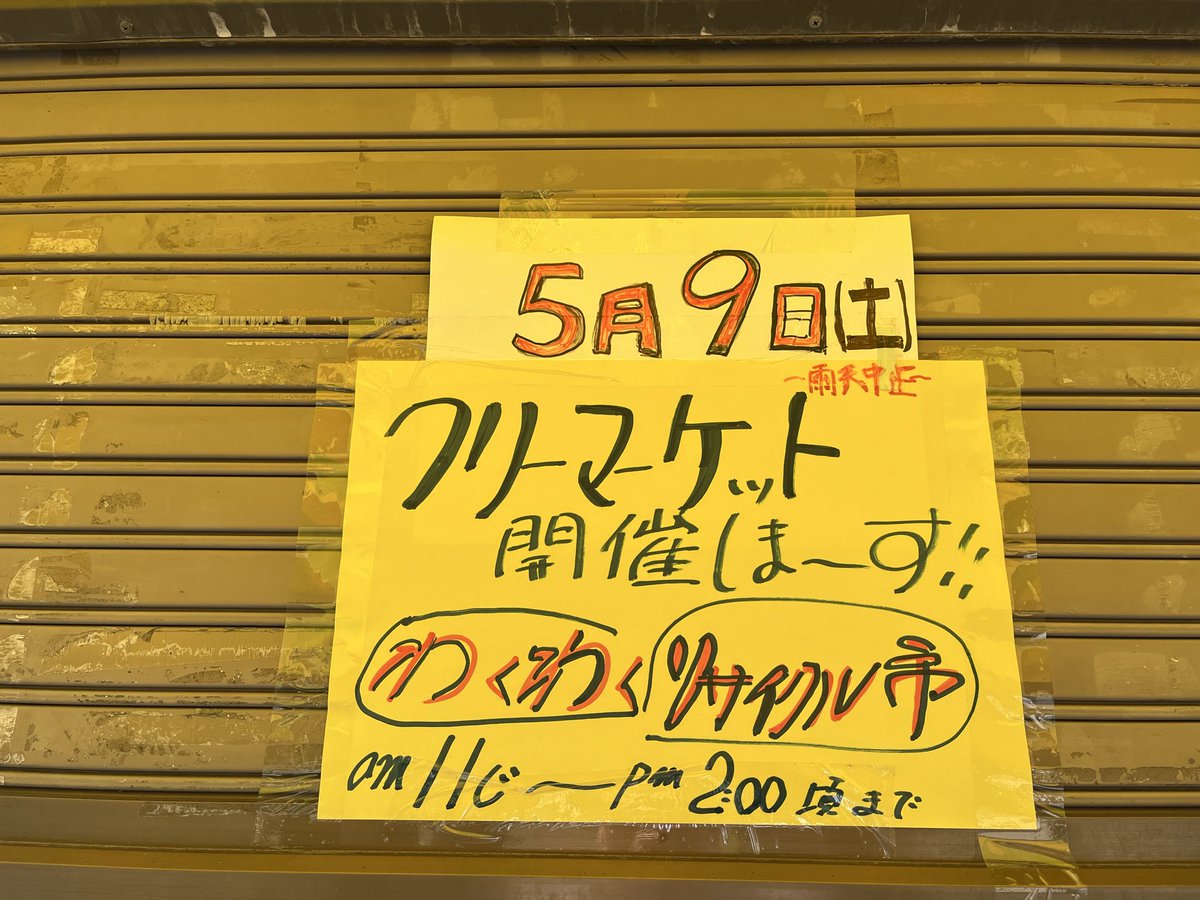 5月9日(土)
~雨天中止~
フリーマーケット
開催しま~す!!
わくわくリサイクル市
am11じ~pm2:00頃まで